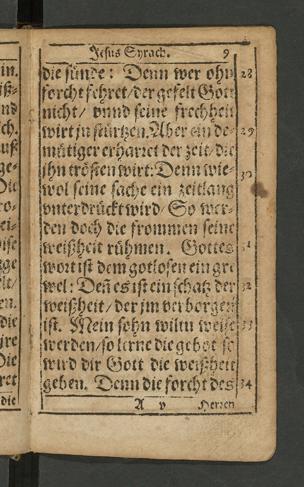 Jesus Syrach. 9
die sünde: Denn wer ohn 28
forcht fehret/ der gefelt Gott
nicht/ vnnd seine frechheit
wirt jn stürtzen. Aber ein de- 29
mütiger erharret der zeit/ die
jhn trösten wirt: Denn wie- 30
wol seine sache ein zeitlang
vnterdrückt wird/ So wer-
den doch die frommen seine
weißheit rühmen. Gottes 31
wort ist dem gotlosen ein gre
wel: Deñ es ist ein schatz der 32
weißheit/ der jm verborgen
ist. Mein sohn wiltu weise 33
werden/ so lerne die gebot so
wird dir Gott die weißheit
geben. Denn die forcht des 34
A v Herren